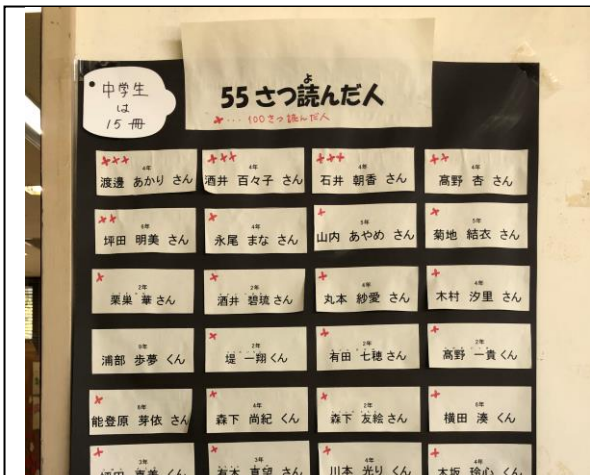 中学生
は
15冊
よ
55さつ読んだ人
…100さつ読んだ人
4年
渡邊 あかり さん
4年
酒井 百々子 さん
4年
石井 朝香 さん
4年
高野 杏 さん
6年
坪田 明美 さん
4年
永尾 まな さん
5年
山内 あやめ さん
5年
菊地 結衣 さん
2年
栗巣 華 さん
2年
酒井 碧琉 さん
4年
丸本 紗愛 さん
4年
木村 汐里 さん
浦部 歩夢 くん
2年
堤 一翔 くん
2年
有田 七穂 さん
2年
高野 一貴 くん
能登原 芽依 さん
4年
森下 尚紀 くん
2年
森下 友絵 さん
6年
横田 湊 くん
3年
くん
3年
有本 さん
4年
川本 光り くん
4年
くん